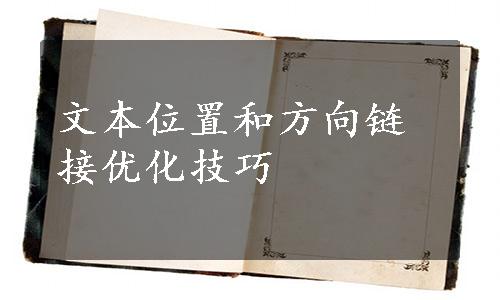 文本位置和方向链
接优化技巧